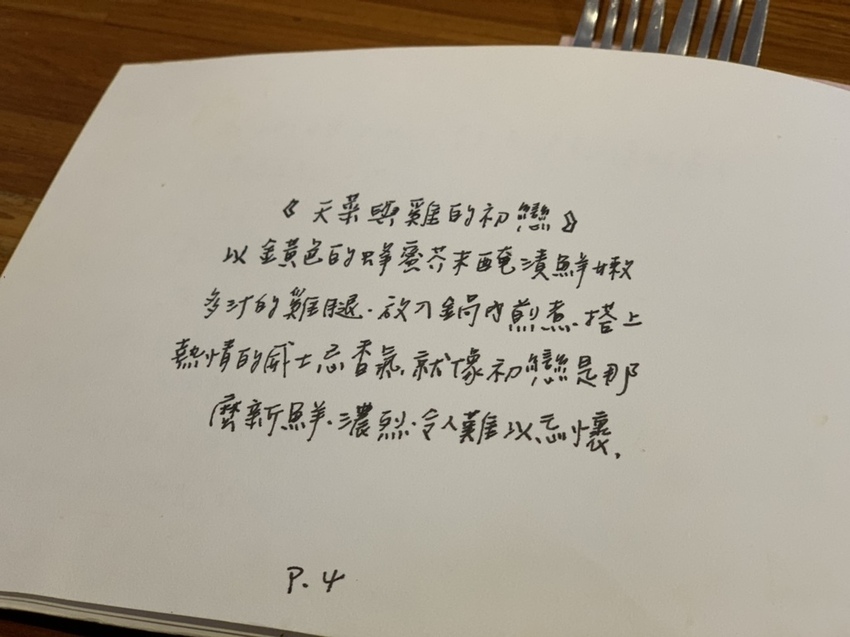 《天菜與雞的初戀》
以金黃色的蜂蜜芥末醃漬鮮嫩
多汁的雞腿.放入鍋內煎煮.搭上
熱情的威士忌香氣,就像初戀是那
麼新鮮.濃烈.令人難以忘懷.
P.4